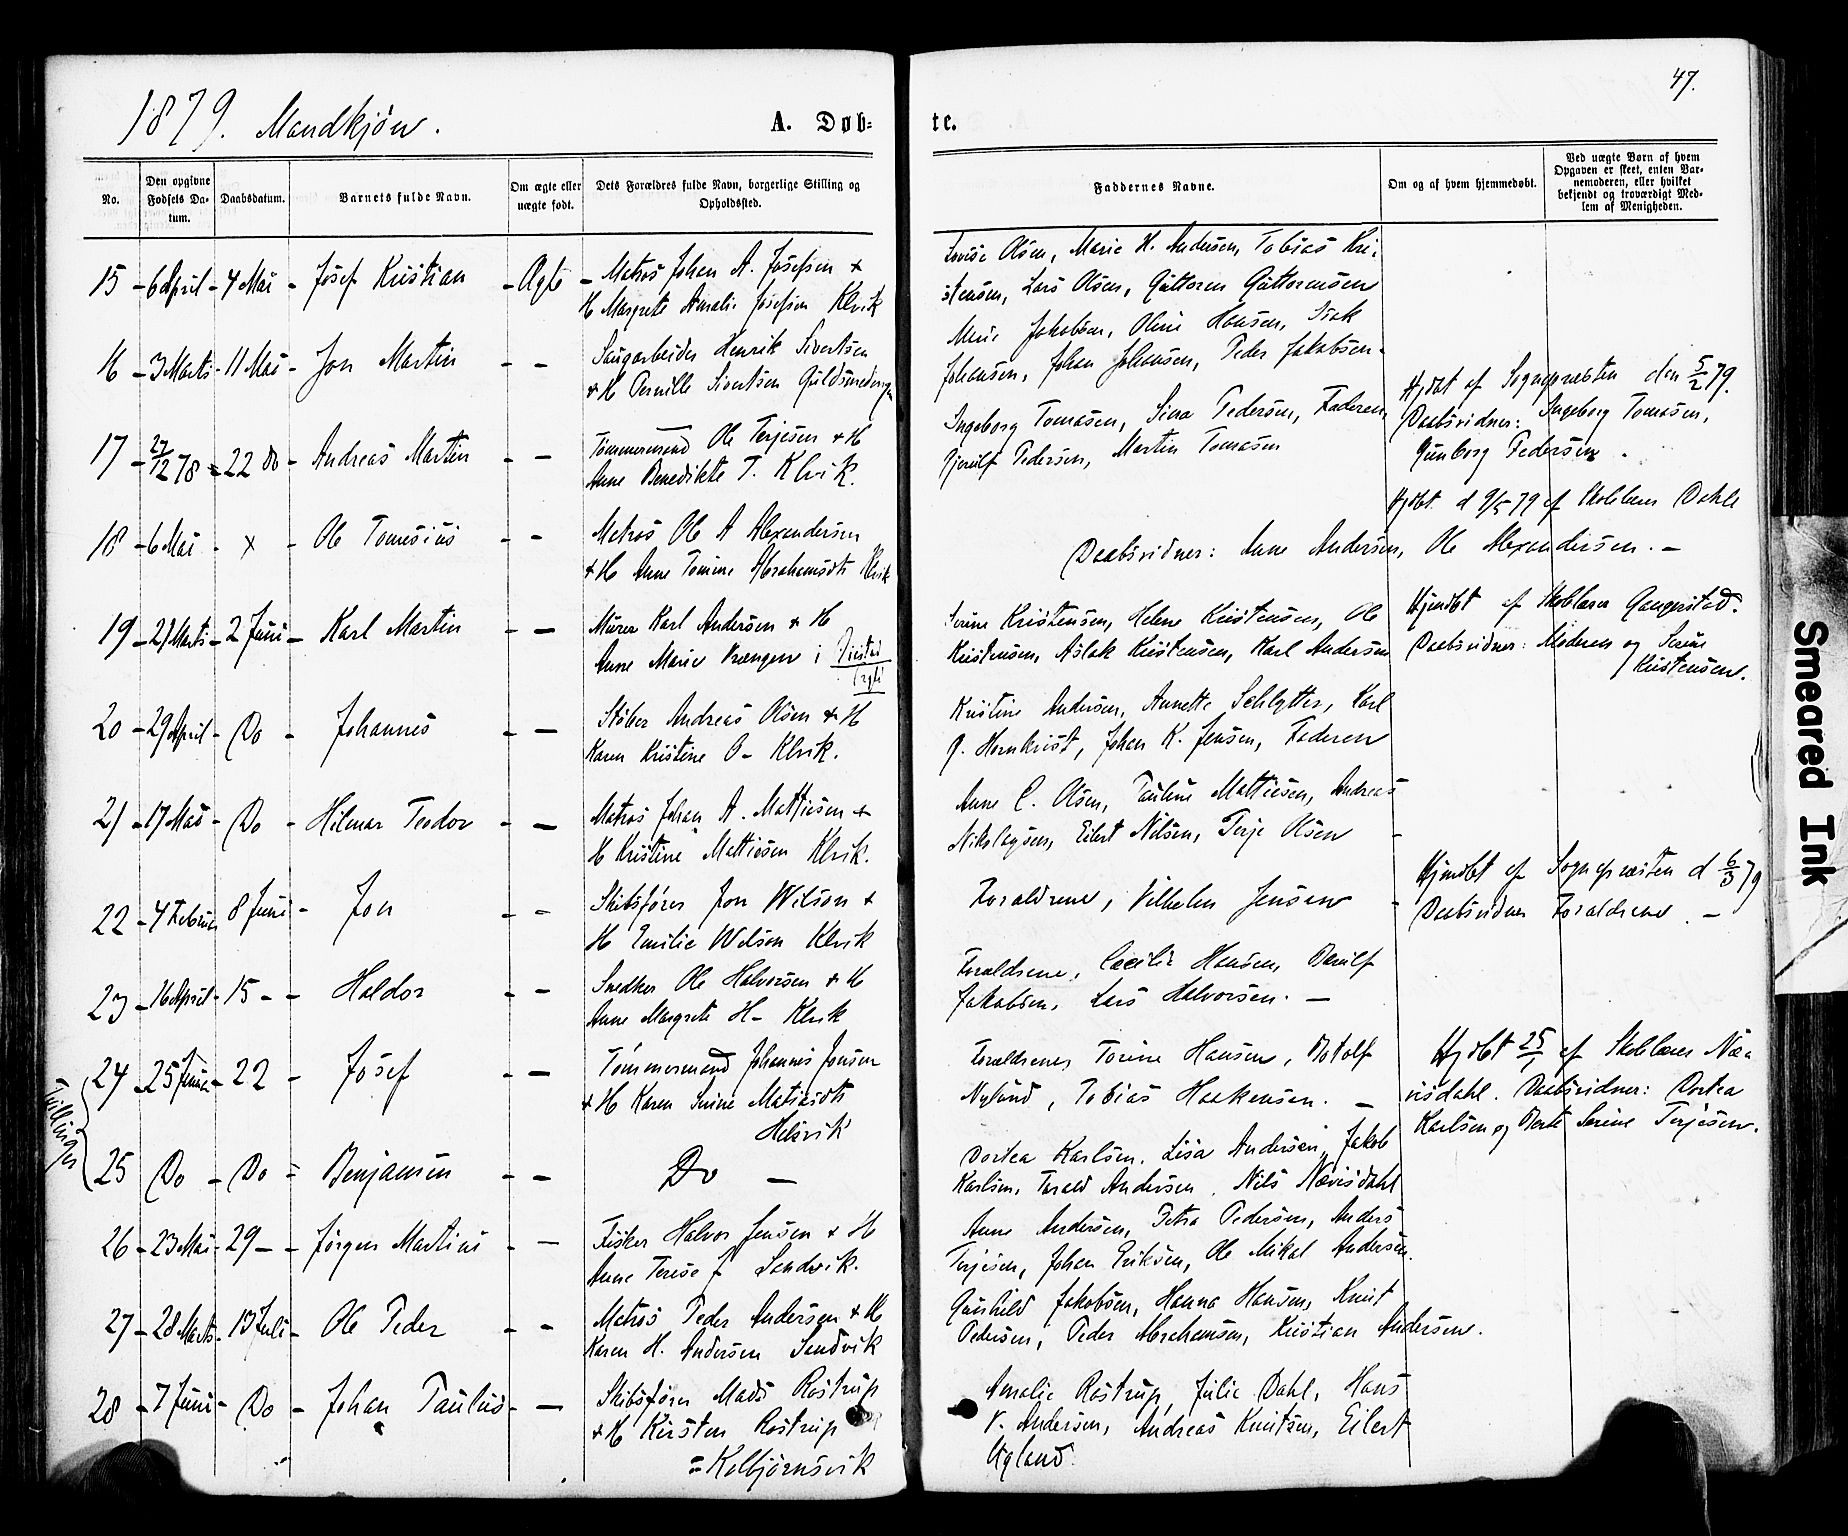 47.
1879. Mandkjön.
A. Døb-
te.
No.
Den opgivne Fødsels Datum.
Daabsdatum.
Barnets fulde Navn.
Om ægte eller uægte født.
Dets Forældres fulde Navn, borgerlige Stilling og Opholdssted.
Faddernes Navne.
Om og af hvem hjemmedøbt.
Ved uægte Børn af hvem Opgaven er skeet, enten Barnemoderen, eller hvilket bekjendt og troværdigt Medlem af Menigheden.
15 - 6 April - 4 Mai - Josef Kristian - Ægte - Matros Johan A. Josefsen +
H Margrete Amalie Josefsen Klvik
Lovise Olsen, Marie H. Andersen, Tobias Kri-
stensen, Lars Olsen, Guttorm Guttormsen
16 - 3 Marts - 11 Mai - Jon Martin - - Saugarbeider Henrik Sivertsen
+ H Pernille Sivertsen
Marie Jakobsen, Oline Hansen, Isak
Johansen, Johan Johansen, Peder Jakobsen -
17 - 27/12 78 - 22 Do - Andreas Martin - - Tømmermand Ole Terjesen + H
Anne Benedikte T. Klvik.
Ingeborg Tomasen, Sina Pedersen, Faderen,
Gjerulf Pedersen, Martin Tomasen
Hjdbt af Sognepræsten den 5/2 79.
Daabsvidner: Ingeborg Tomasen,
Gunborg Pedersen.
18 - 6 Mai - x - Ole Tomesius - - Matros Ole A Alexandersen
+ H Anne Tomine Abrahamsdtr Klvik
Hjdbt d 9/5 79 af Skolelærer Dahle
Daabsvidner: Anne Andersen, Ole Alexandersen. -
19 - 21 Marts - 2 Juni - Karl Martin - - Murer Karl Andersen + H
Anne Marie Vrængen i
Serine Kristensen, Helene Kristensen, Ole
Kristensen, Aslak Kristensen, Karl Andersen
Hjmdbt af Skolelærer Gangerstad.
Daabsvidner: Moderen og Serine
Kristensen.
20 - 29 April - Do - Johannes - - Støber Andreas Olsen + H
Karen Kristine O - Klvik.
Kristine Andersen, Annette Schlytter, Karl
G. Hornkvist, Johan K. Jensen, Faderen
21 - 17 Mai - Do - Hilmar Teodor - - Matros Johan A. Mattiesen +
H Kristine Mattiesen Klvik.
Anne C. Olsen, Pauline Mattiesen, Andreas
Nikolaysen, Eilert Nilsen, Terje Olsen -
22 - 4 Februar - 8 Juni - Jon - - Skibsfører Jon Wilson +
H Emilie Wilson Klvik
Forældrene, Vilhelm Jensen -
Hjmdbt af Sognepræsten d 6/3 79
Daabsvidner Forældrene. -
23 - 16 April - 15 - - Haldor - - Snedker Ole Halvorsen + H
Anne Margrete H - Klvik
Forældrene, Cæcilie Hansen,
Jakobsen, Lars Halvorsen. -
Tvillinger
24 - 25 Januar - 22 - Josef - - Tømmermand Johannes Jonsen
+ H Karen Serine Matiasdtr
Helsvik
Forældrene, Torine Hansen, Botolf
Nylund, Tobias Haakensen. -
Hjdbt 25/1 af Skolelærer Næ-
visdahl. Daabsvidner: Dortea
Karlsen og Berte Serine Terjesen.
25 Do - Do - Benjamin - - Do -
Dortea Karlsen, Lisa Andersen, Jakob
Karlsen, Torald Andersen, Nils Nævisdahl
26 - 23 Mai - 29 - - Jörgen Martini - - Fisker Halvor Jensen + H
Anne Terese J Sandvik.
Anne Andersen, Petra Pedersen, Anders
Terjesen, Johan Eriksen, Ole Mikal Andersen.
27 - 28 Marts - 13 Juli - Ole Peder - - Matros Peder Andersen + H
Karen H. Andersen Sandvik
Gunhild Jakobsen, Hanna Hansen, Knut
Pedersen, Peder Abrahamsen, Kristian Andersen.
28 - 7 Juni - Do - Johan Paulus - - Skibsfører Mads Rostrup
+ H Kirsten Rostrup
= Kolbjørnsvik
Amalie Rostrup, Julie Dahl, Hans
V. Andersen, Andreas Knutsen, Eilert
Ugland.
Smeared Ink